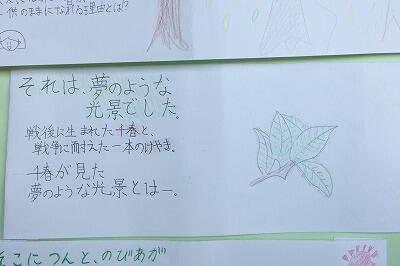 供のままになれる理由とは!?
それは、夢のような
光景でした。
戦後に生まれた千春と、
戦争に耐えた一本のけやき。
千春が見た
夢のような光景とは―。
そこにつんと、のびあが